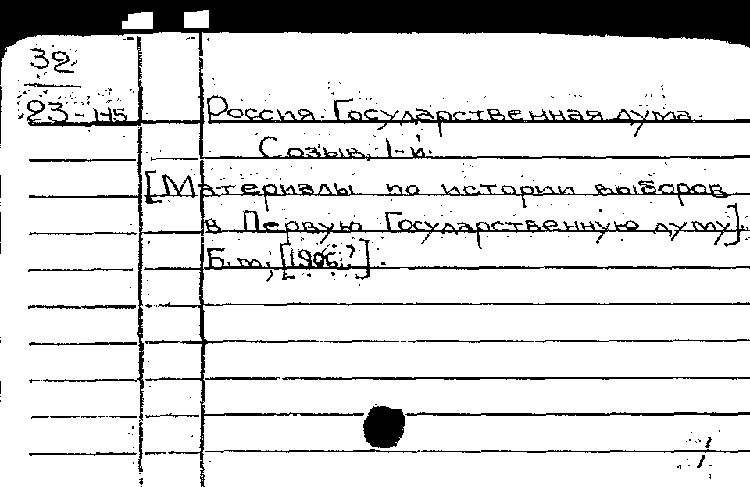 32
23-145
Россия. Государственная дума.
Созыв, 1-й.
[Материалы по истории выборов
в Первую Государственную думу].
Б.м., [1906?].